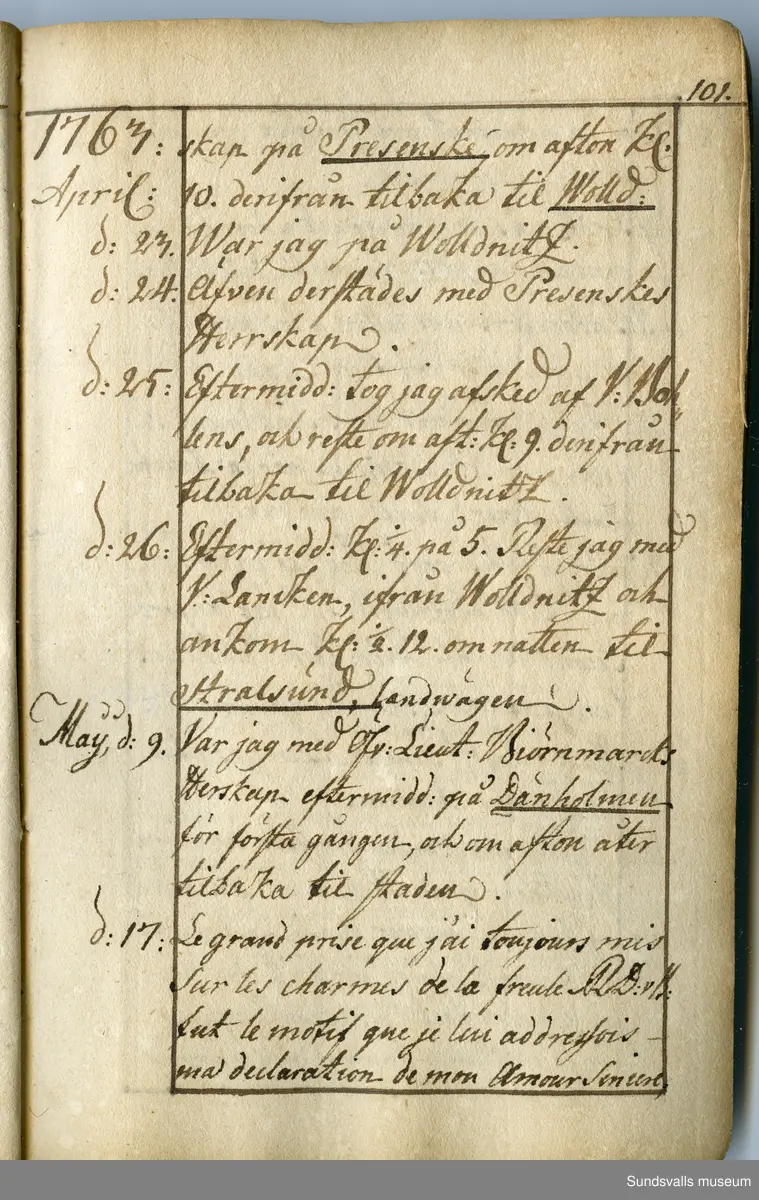 101.
1763: skap på Presenske om afton Kl.
April: 10. derifrån tilbaka til Wolld:
d: 23. War jag på Wolldnitz.
d: 24: Äfven derstädes med Presenskes
Herrskap.
d: 25: Eftermidd: tog jag afsked af V: Boh„
lens, och reste om aft: Kl: 9. derifrån
tilbaka til Wolldnitz.
d: 26: Eftermidd: Kl: ¼. på 5. Reste jag med
V: Lancken, ifrån Wolldnitz och
ankom Kl: ½. 12. om natten til
Stralsund, landwägen.
Maÿ, d: 9. Var jag med Öfv: Lieut: Biörnmarcks
Herskap eftermidd: på Dänholmen
för första gången, och om afton åter
tilbaka til staden.
d: 17: Le grand prise que j'ai toujours mis
sur les charmes de la freule
fut le motif que je lui addressois
ma declaration de mon Amour sincere,
Sundsvalls museum